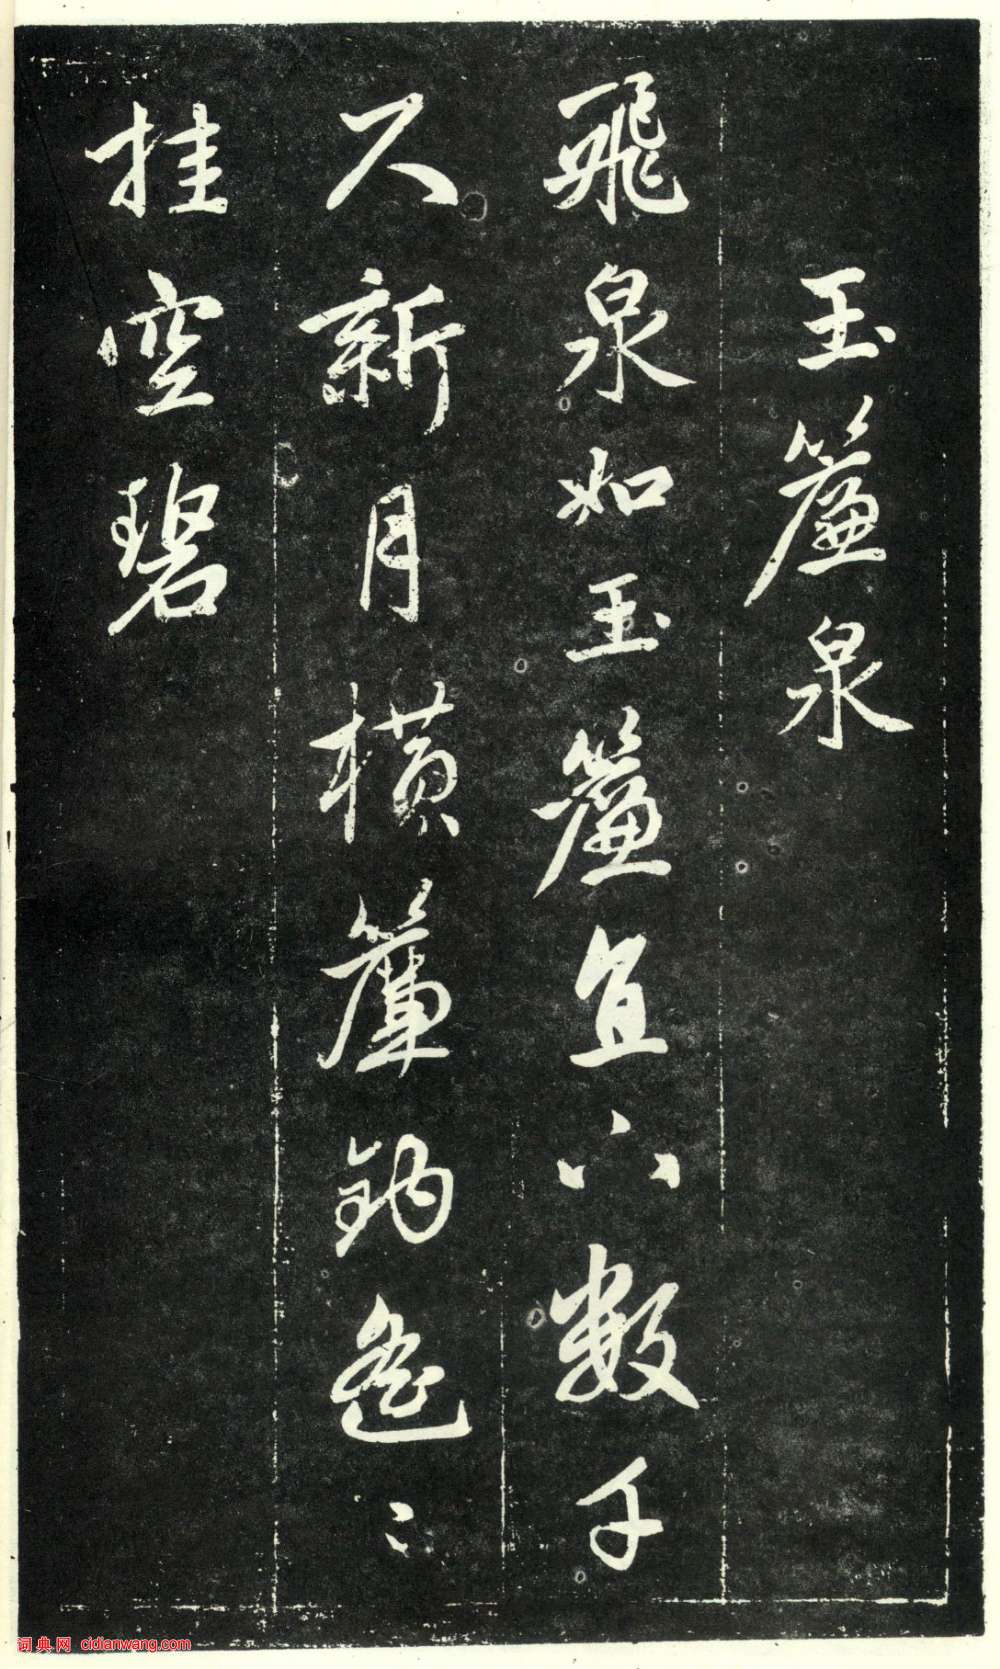 玉簾泉
飛泉如玉簾直下數千
尺新月橫簾鈎遙〻
挂空碧
词典网 cidianwang.com